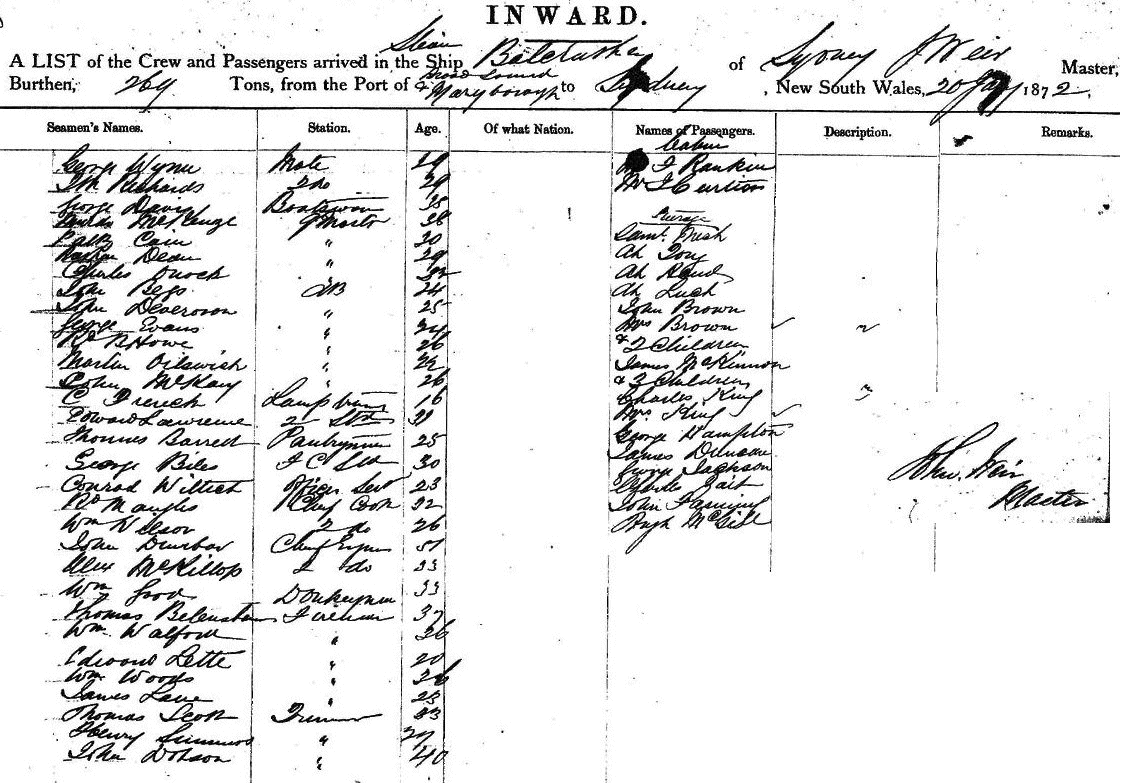 INWARD.
A LIST of the Crew and Passengers arrived in the Ship Steam of Sydney J Weir Master,
Burthen, 264 Tons, from the Port of Broad Sound & Maryborough to Sydney, New South Wales, 20 Jany 1872.
Seamen's Names. Station. Age. Of what Nation. Names of Passengers. Description. Remarks.
Cabin
George Wynne Mate 29 J Rankin
Jth Richards 2 do 29 Mr J Curtis
George Davis Boatswain 38
McKenzie Qr Master 38 Steerage
Cain " 30 Saml. Frish
Dean " 29 Ah
Charles " 32 Ah
John Begs AB 24 Ah Luck
John " 25 John Brown
George Evans " 34 Mrs Brown
Rd R Howe " 26 & 2 Children
Martin " 22 James McKinnon
John McKay " 26 & 3 Children
C French Lamp trimr 16 Charles King
Edward Lawrence 2 Std 31 Mrs King
Thomas Barrett Pantryman 25 George Hampton
George Biles F C Std 30 James Duncan
Conrad Wittich Officers Servt 23 George Jackson
Rd Maugles Chief Cook 32 Charles Tait
Wm Nelson 2 do 26 John
John Dunbar Chief Engineer 51 Hugh McGill
Alex McKillop 2 do 33
Wm Good Donkeyman 33
Thomas Fireman 37
Wm Walford " 36
Edward Lette " 20
Wm Woods " 36
James Lane " 28
Thomas Scott Trimmer 23
Henry Simmons " 27
John Dobson " 40
John Weir
Master